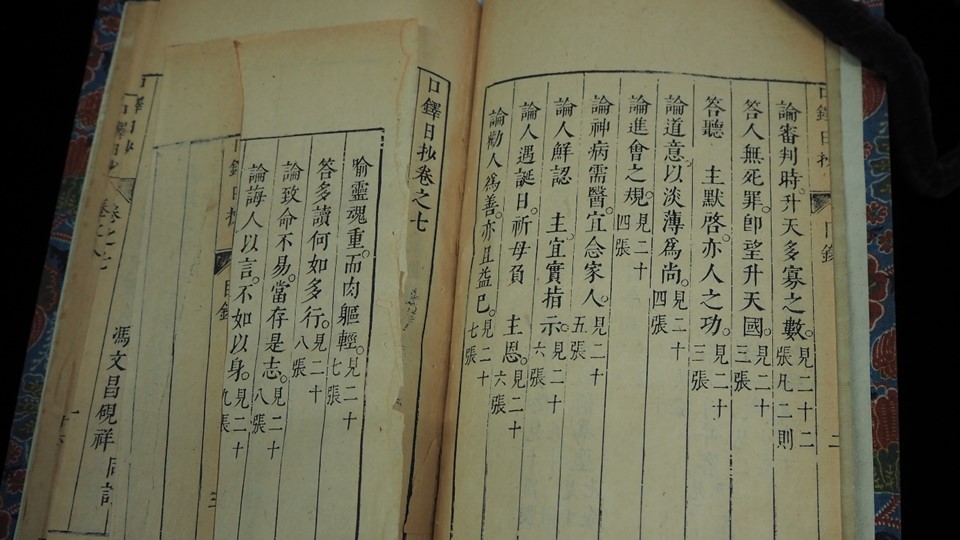 論審判時。升天多寡之數。見二十二張凡二則
答人無死罪。卽望升天國。見二十三張
答聽　主默啓。亦人之功。見二十三張
論道意。以淡薄爲尚。見二十四張
論進會之規。見二十四張
論神病需醫。宜念家人。見二十五張
論人鮮認　主。宜實指示。見二十六張
論人遇誕日。祈母負　主恩。見二十六張
論勸人爲善。亦且益已。見二十七張
口鐸日抄卷之七
喻靈魂重。而肉軀輕。見二十七張
答多讀何如多行。見二十八張
論致命不易。當存是志。見二十八張
論誨人以言。不如以身。見二十九張
目錄
三
口鐸日抄
卷之七
馮文昌硯祥